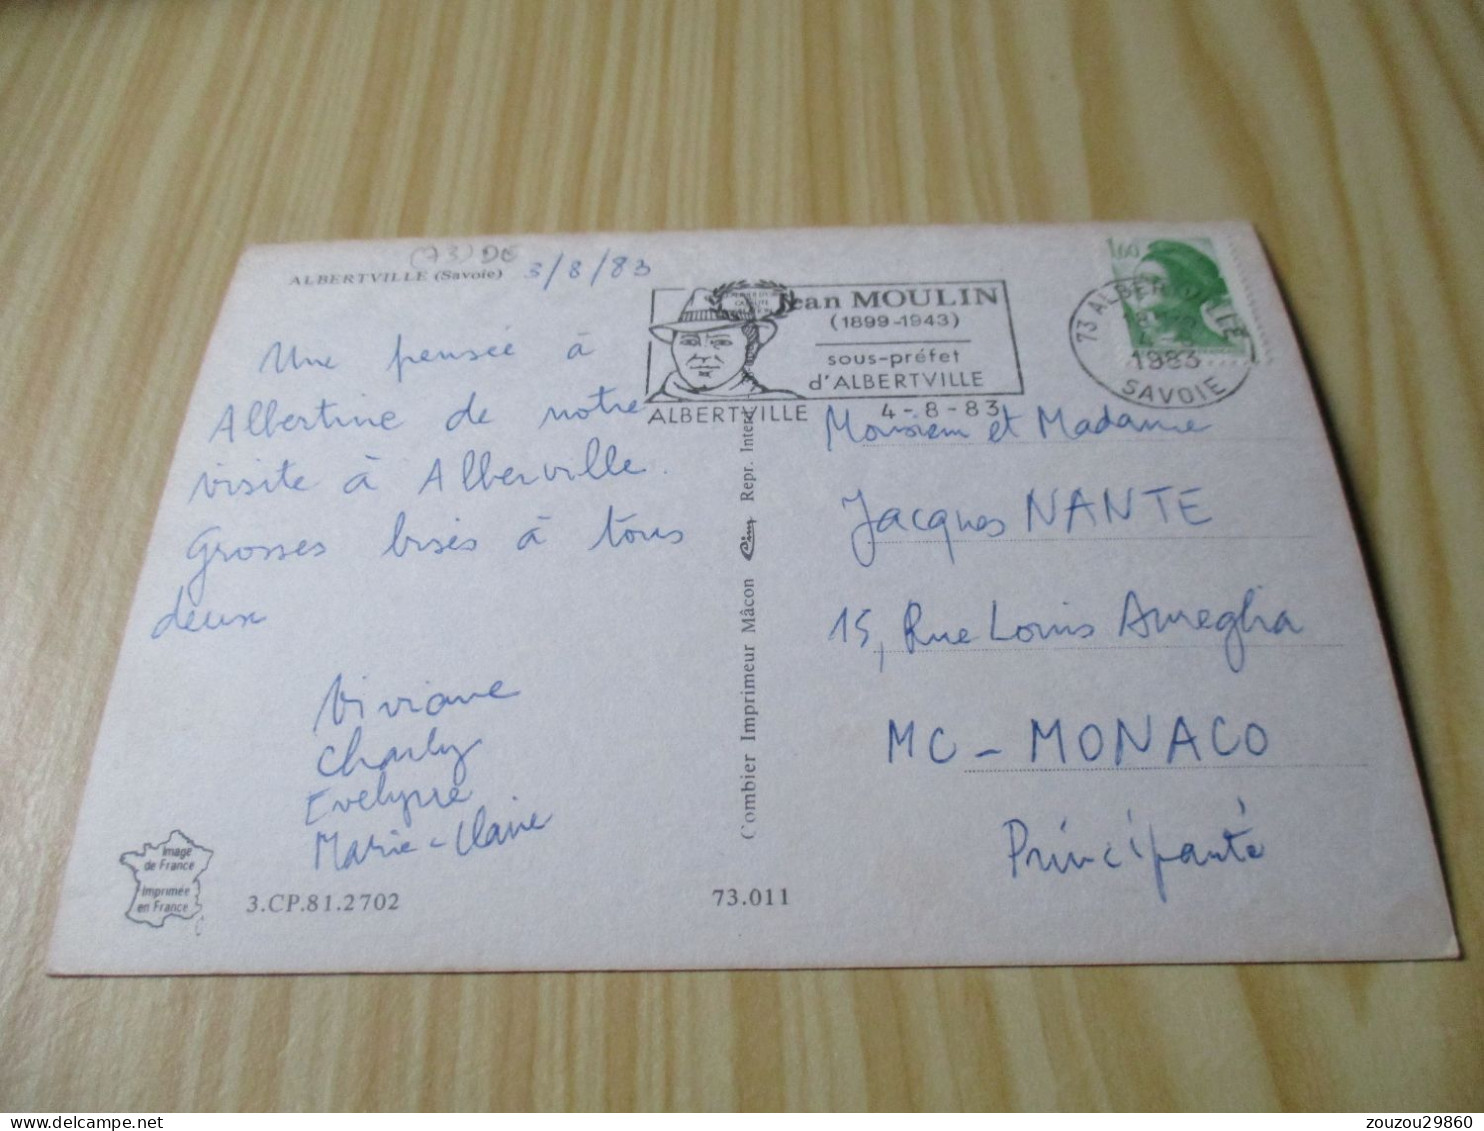 (73) DE
ALBERTVILLE (Savoie) 3/8/83
Une pensée à
Albertine de notre
visite à Alberville.
Grosses bises à tous
deux
Viviane
Charly
Evelyne
Marie-Claire
Image
de France
Imprimée
en France
3.CP.81.2702
73.011
Combier Imprimeur Mâcon Cim Repr. Interd.
Jean MOULIN
(1899-1943)
sous-préfet
d'ALBERTVILLE
ALBERTVILLE 4-8-83
1,60
73 ALBERTVILLE
1983
SAVOIE
Monsieur et Madame
Jacques NANTE
15, Rue Louis Aureglia
MC - MONACO
Principauté
zouzou29860